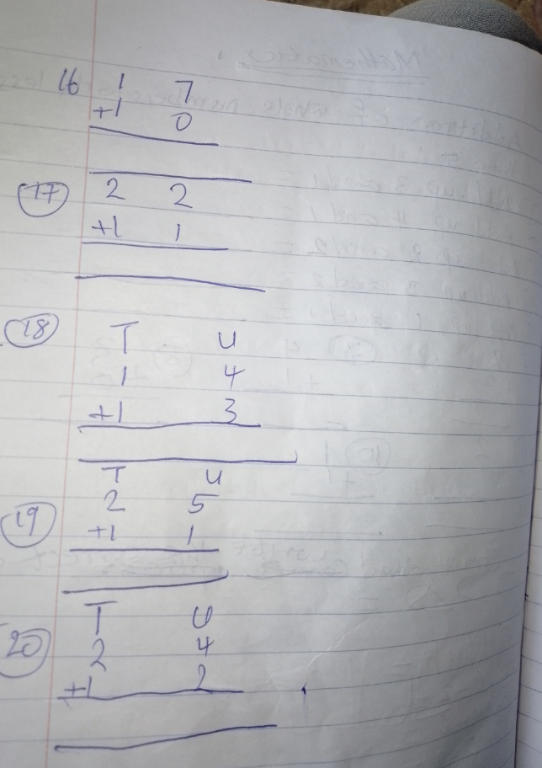 16 1 7
+1 0
17 2 2
+1 1
18 T U
1 4
+1 3
T U
19 2 5
+1 1
T U
20 2 4
+1 2